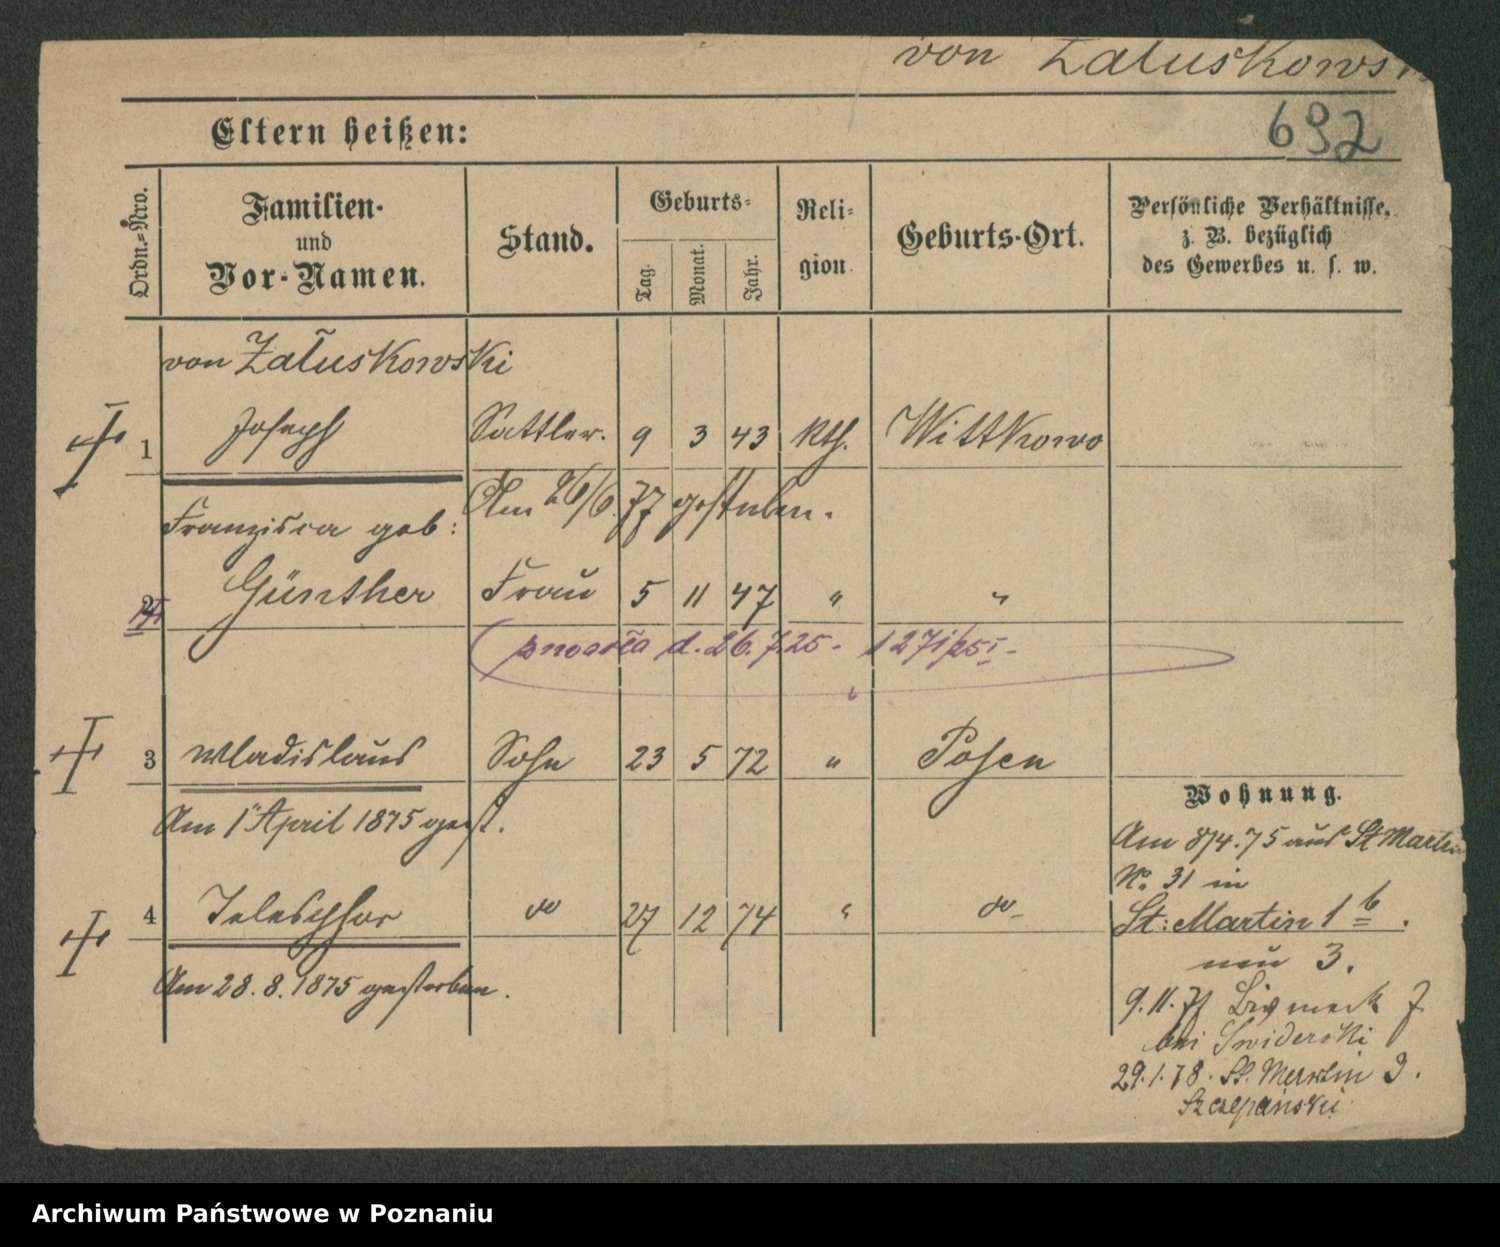 von Załuskows
692
Eltern heißen:
Ordn.-Nro.
Familien- und Vor-Namen.
Stand.
Geburts-
Tag.
Monat.
Jahr.
Reli-gion.
Geburts-Ort.
Persönliche Verhältnisse, z. B. bezüglich des Gewerbes u. s. w.
von Załuskowski
1 Joseph Sattler. 9 3 43 kth. Wittkowo
Am 26/6. 77 gestorben.
Franzisca geb:
2 Günther Frau 5 11 47 " "
zmarła d. 26.7.25 - 1271/25 I -
3 Wladislaus Sohn 23 5 72 " Posen
Am 1 April 1875 gest.
4 Telesphor do 27 12 74 " do-
Am 28. 8. 1875 gestorben.
Wohnung.
Am 8/4. 75 aus St Martin
No. 31 in
St: Martin 1 b.
neu 3.
9.11.77 Bismarck 7
bei Swiderski
29.1.78. St. Martin 3.
Szczepański
Archiwum Państwowe w Poznaniu